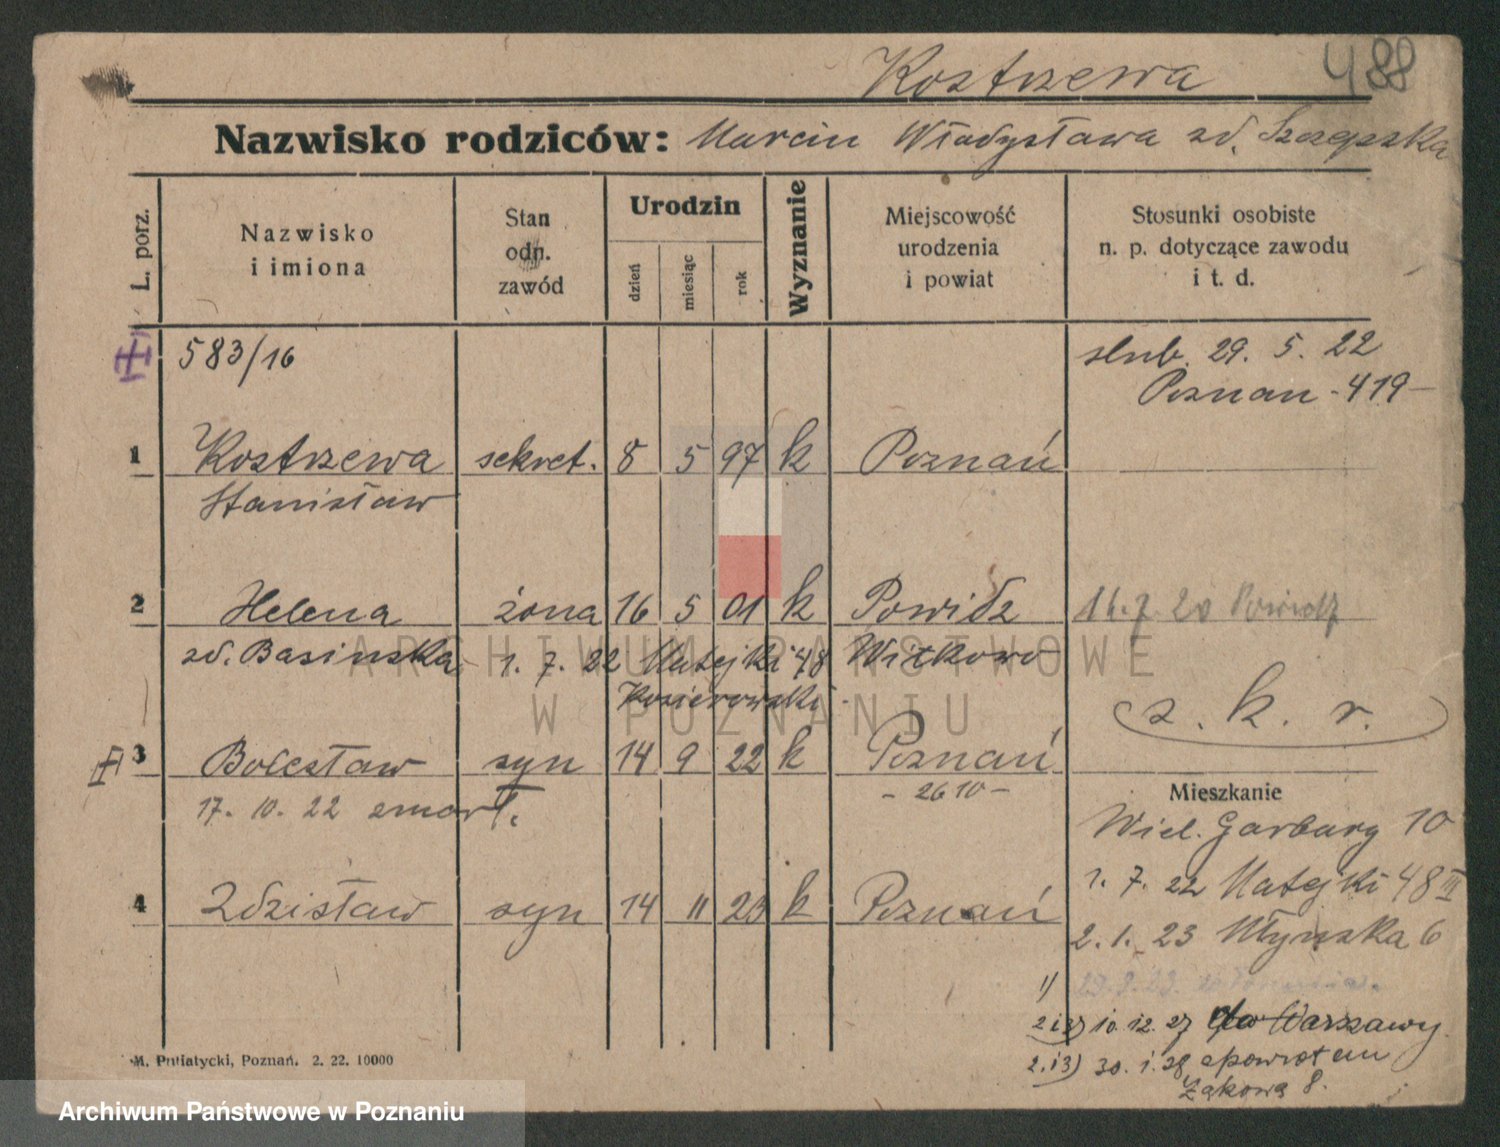 Kostrzewa 488
Nazwisko rodziców: Marcin Władysława zd. Szczepska
L. porz.
Nazwisko
i imiona
Stan
odn.
zawód
Urodzin
dzień
miesiąc
rok
Wyznanie
Miejscowość
urodzenia
i powiat
Stosunki osobiste
n. p. dotyczące zawodu
i t. d.
583/16
ślub. 29. 5. 22
Poznań - 419 -
1 Kostrzewa sekret. 8 5 97 k Poznań
Stanisław
2 Helena żona 16 5 01 k Powidz 16. 7. 20 Powidz
zd. Basińska 1. 7. 22 Matejki 48 Witkowo
Kosierowski
z. k. r.
3 Bolesław syn 14 9 22 k Poznań
- 2610 -
17. 10. 22 zmarł.
Mieszkanie
Wiel. Garbary 10
1. 7. 22 Matejki 48 III
4 Zdzisław syn 14 11 23 k Poznań
2. 1. 23 Młyńska 6
1) 29. 8. 23
2 i 3) 10. 12. 27 do Warszawy
2. i 3) 30. 1. 28 spowrotem
Żąkowa 8.
M. Putiatycki, Poznań. 2. 22. 10000
ARCHIWUM PAŃSTWOWE
W POZNANIU
Archiwum Państwowe w Poznaniu